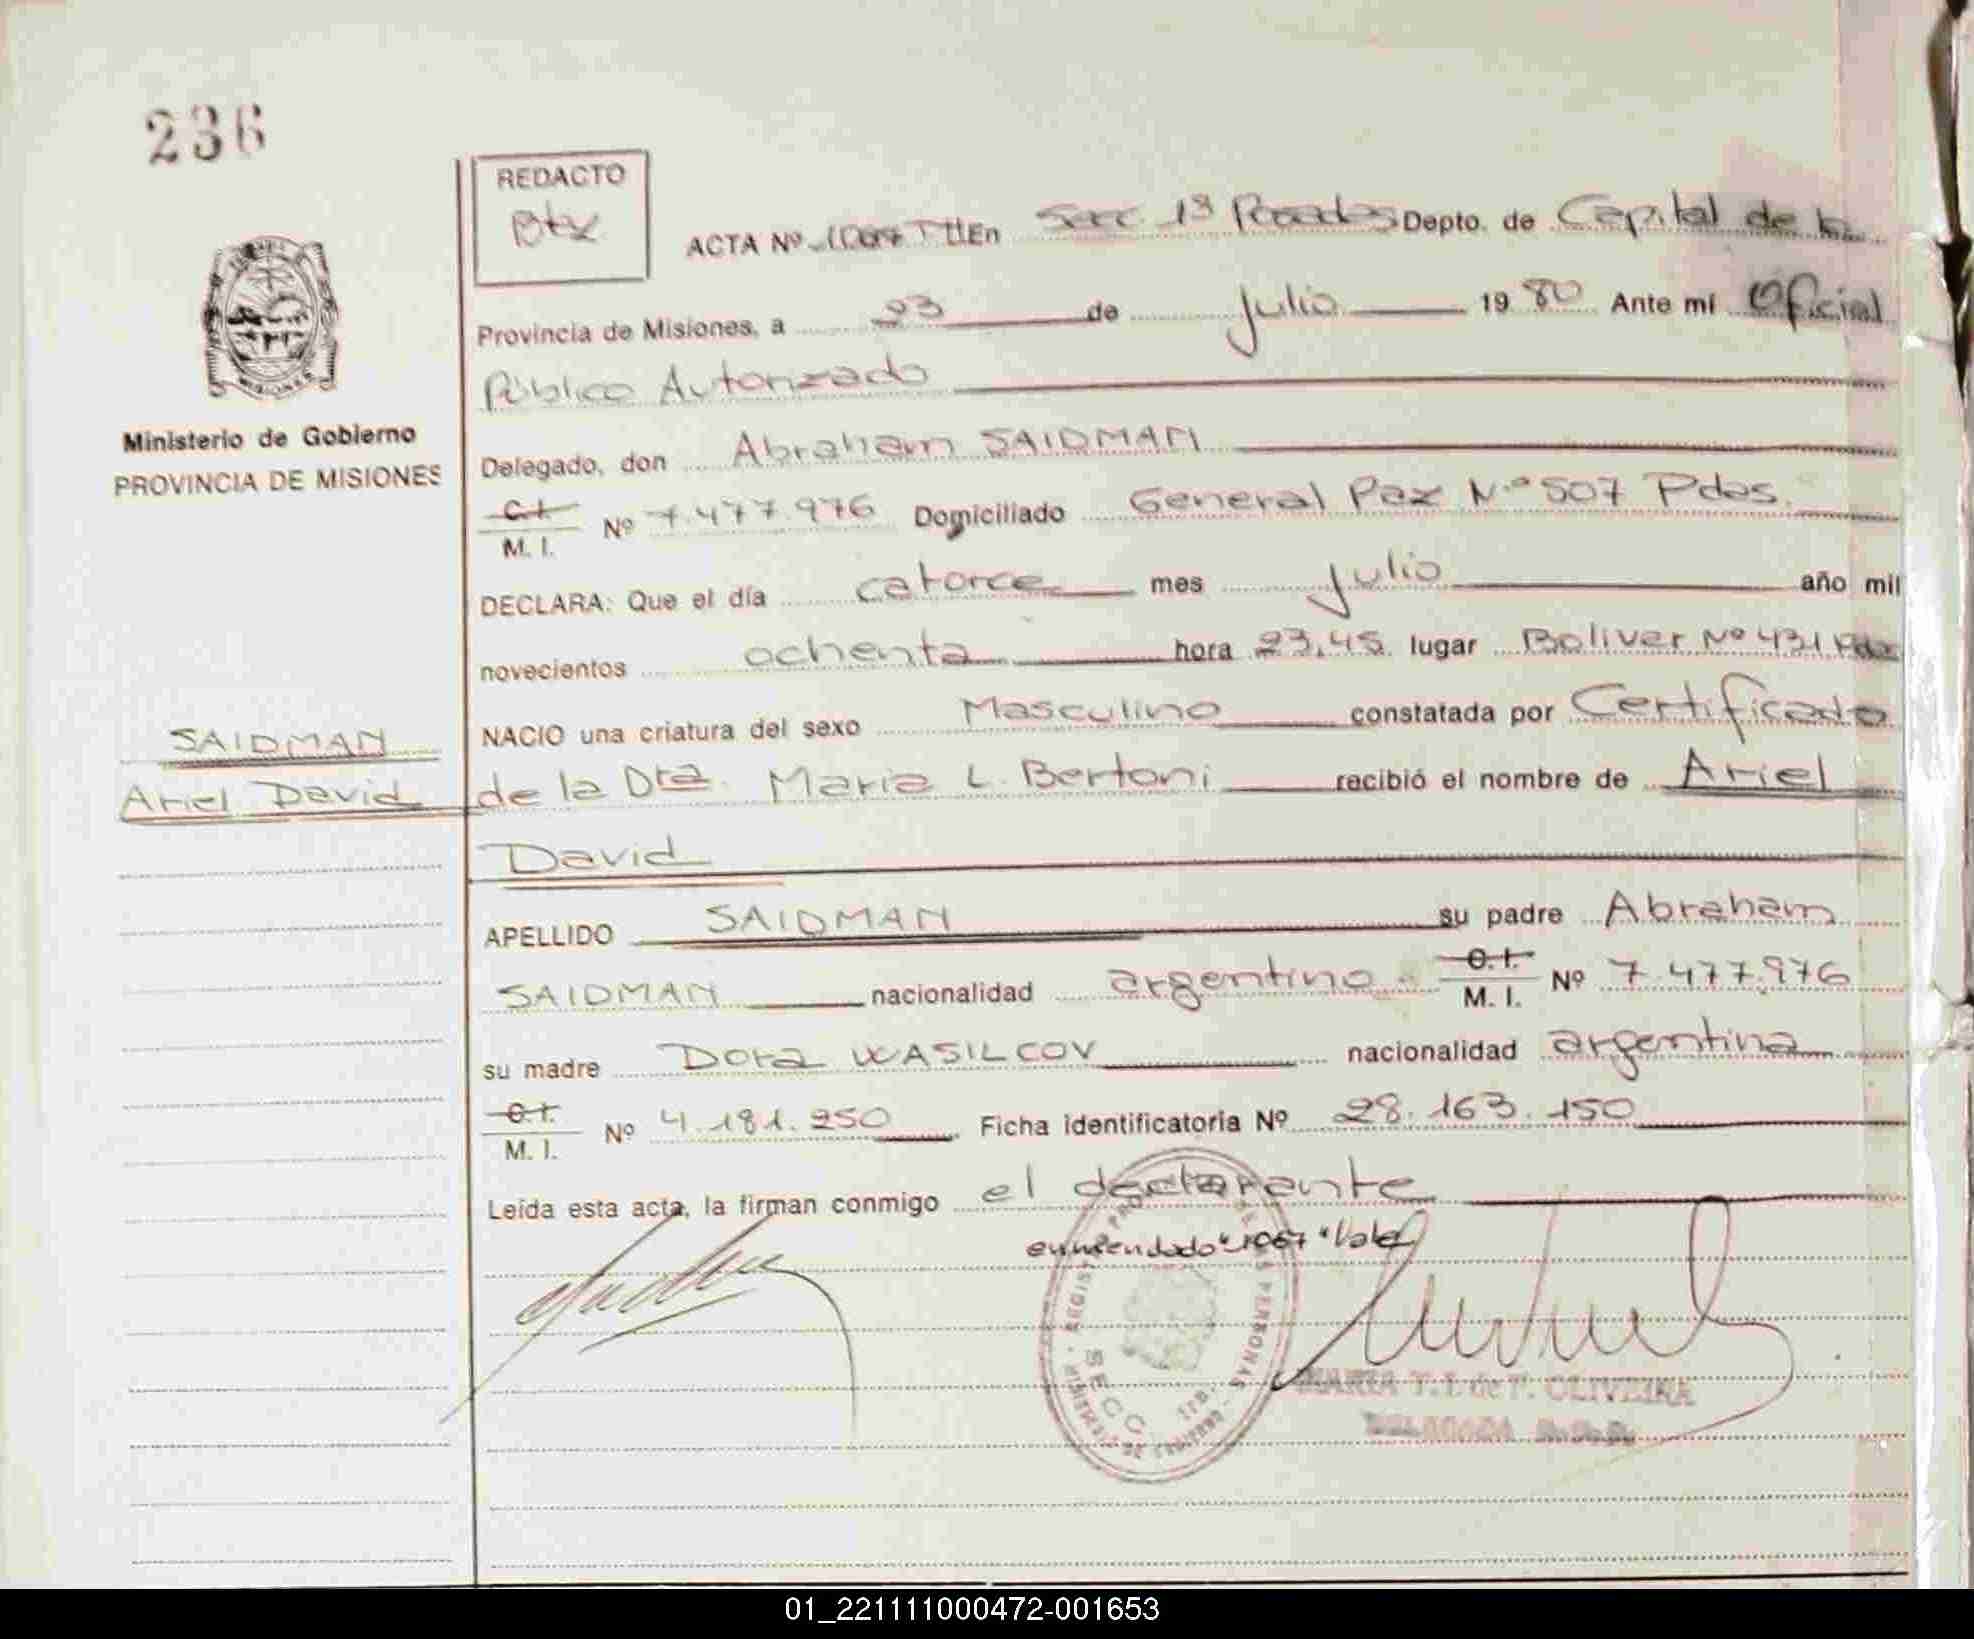 236
REDACTO
ACTA Nº 1067 T III En Secc. 1ª Posadas Depto. de Capital de la
Provincia de Misiones, a 23 de Julio 1980 Ante mí Oficial
Público Autorizado
Ministerio de Gobierno
PROVINCIA DE MISIONES
Delegado, don Abraham SAIDMAN
C.I. M. I. Nº 7.477.976 Domiciliado General Paz Nº 507 Pdas.
DECLARA: Que el día catorce mes Julio año mil
novecientos ochenta hora 23,45 lugar Bolivar Nº 431 Pdas
NACIO una criatura del sexo Masculino constatada por Certificado
SAIDMAN
Ariel David
de la Dra. Maria L. Bertoni recibió el nombre de Ariel
David
APELLIDO SAIDMAN su padre Abraham
SAIDMAN nacionalidad argentino C.I. M. I. Nº 7.477.976
su madre Dora WASILCOV nacionalidad argentina
C.I. M. I. Nº 4.181.250 Ficha identificatoria Nº 28.163.150
Leída esta acta, la firman conmigo el declarante
enmendado "1067" Vale
SECC
MARIA T. I. de F. OLIVEIRA
DELEGADA
01_221111000472-001653